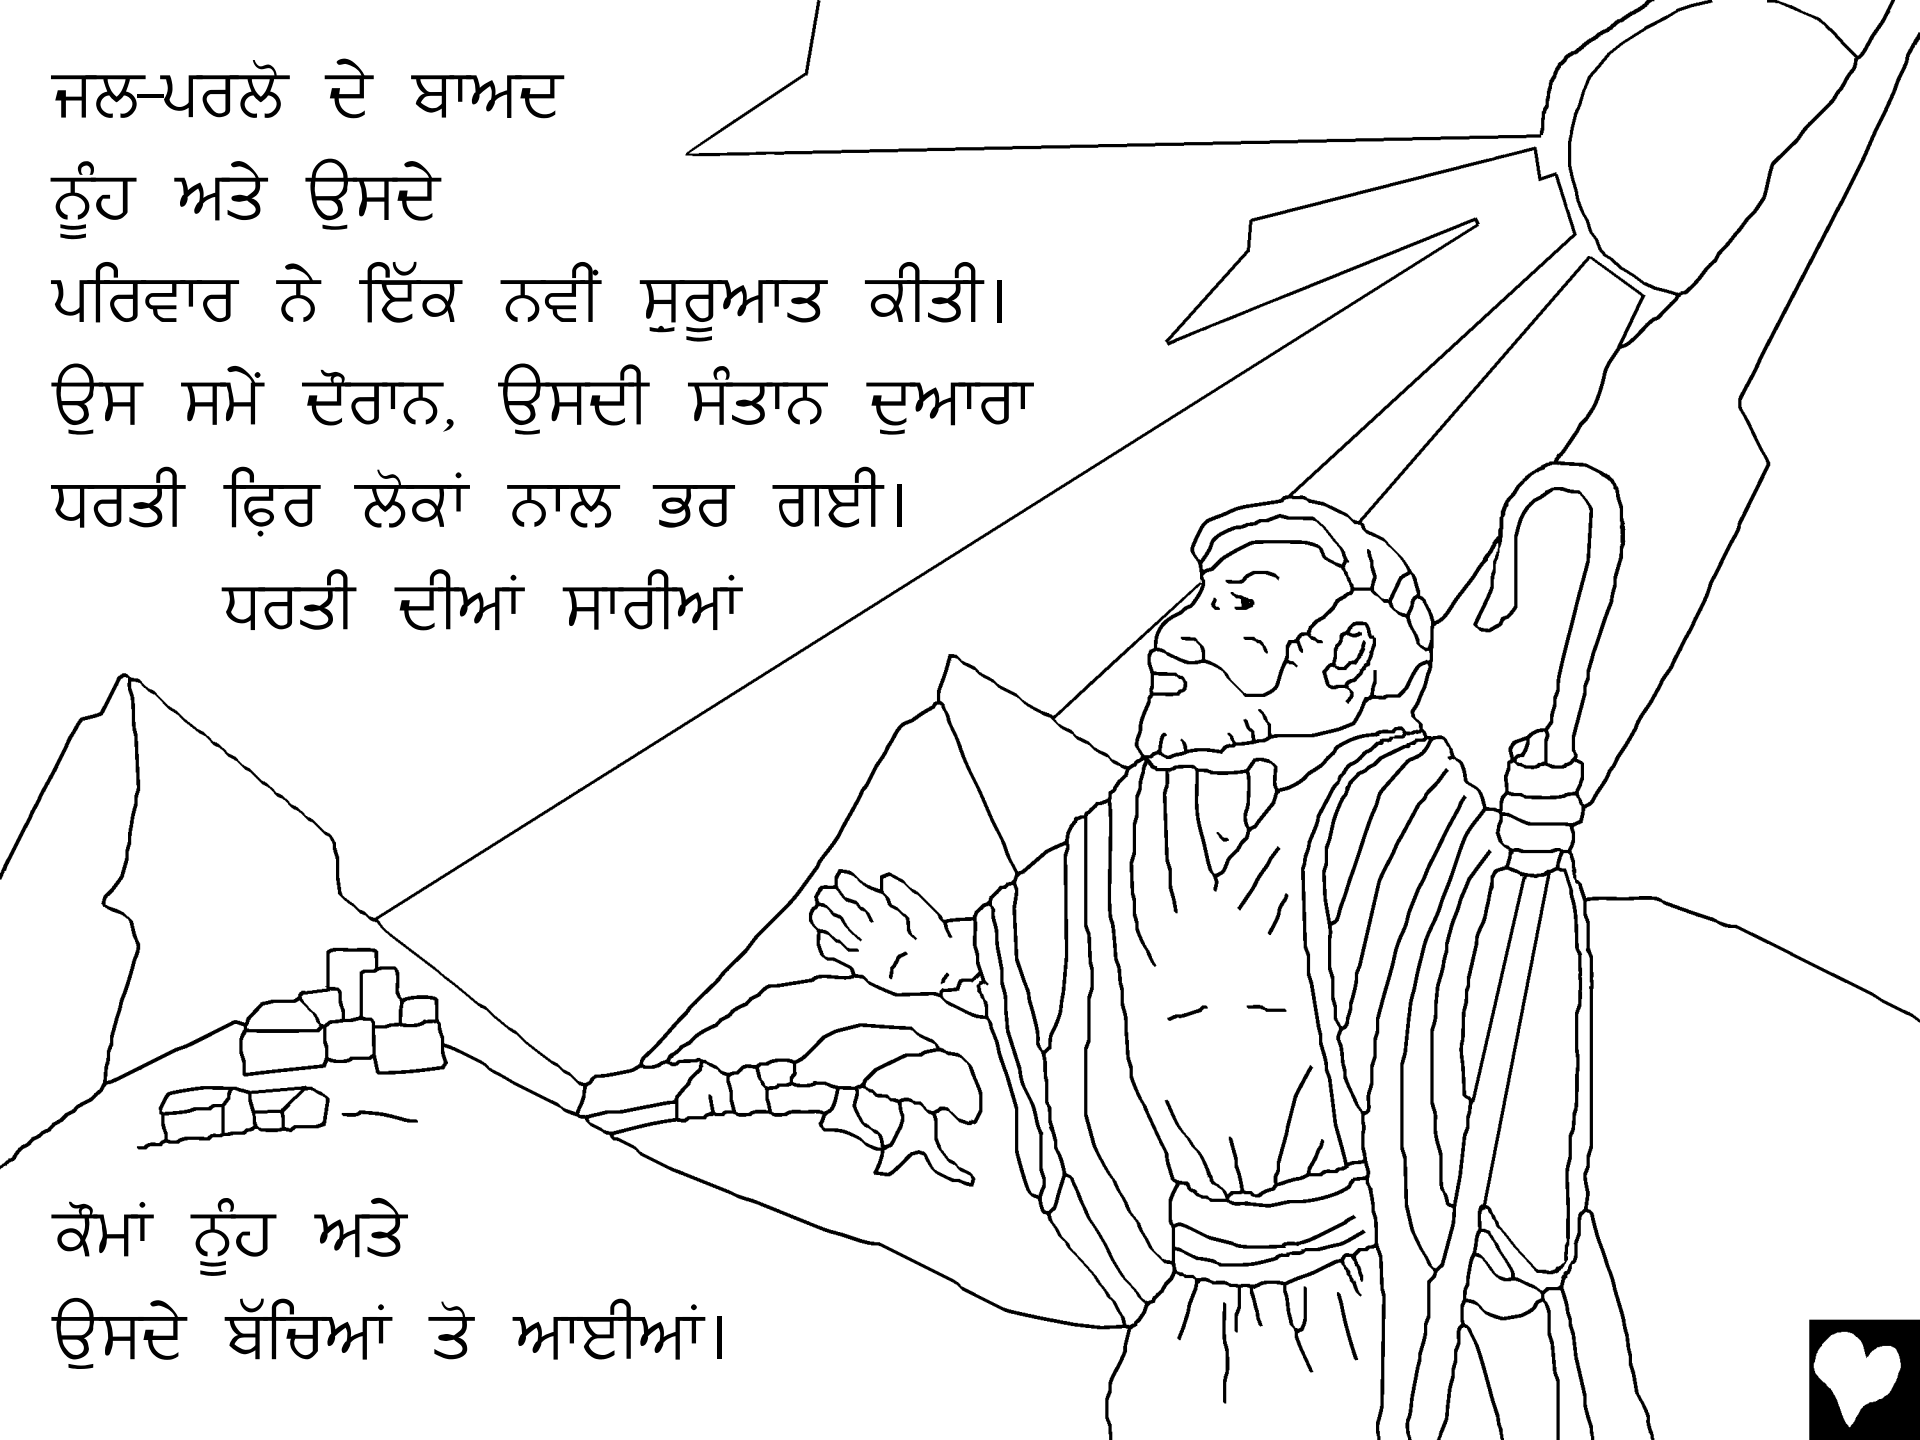 ਜਲ-ਪਰਲੋ ਦੇ ਬਾਅਦ
ਨੂੰਹ ਅਤੇ ਉਸਦੇ
ਪਰਿਵਾਰ ਨੇ ਇੱਕ ਨਵੀਂ ਸ਼ੁਰੂਆਤ ਕੀਤੀ।
ਉਸ ਸਮੇਂ ਦੌਰਾਨ, ਉਸਦੀ ਸੰਤਾਨ ਦੁਆਰਾ
ਧਰਤੀ ਫ਼ਿਰ ਲੋਕਾਂ ਨਾਲ ਭਰ ਗਈ।
ਧਰਤੀ ਦੀਆਂ ਸਾਰੀਆਂ
ਕੌਮਾਂ ਨੂੰਹ ਅਤੇ
ਉਸਦੇ ਬੱਚਿਆਂ ਤੋ ਆਈਆਂ।